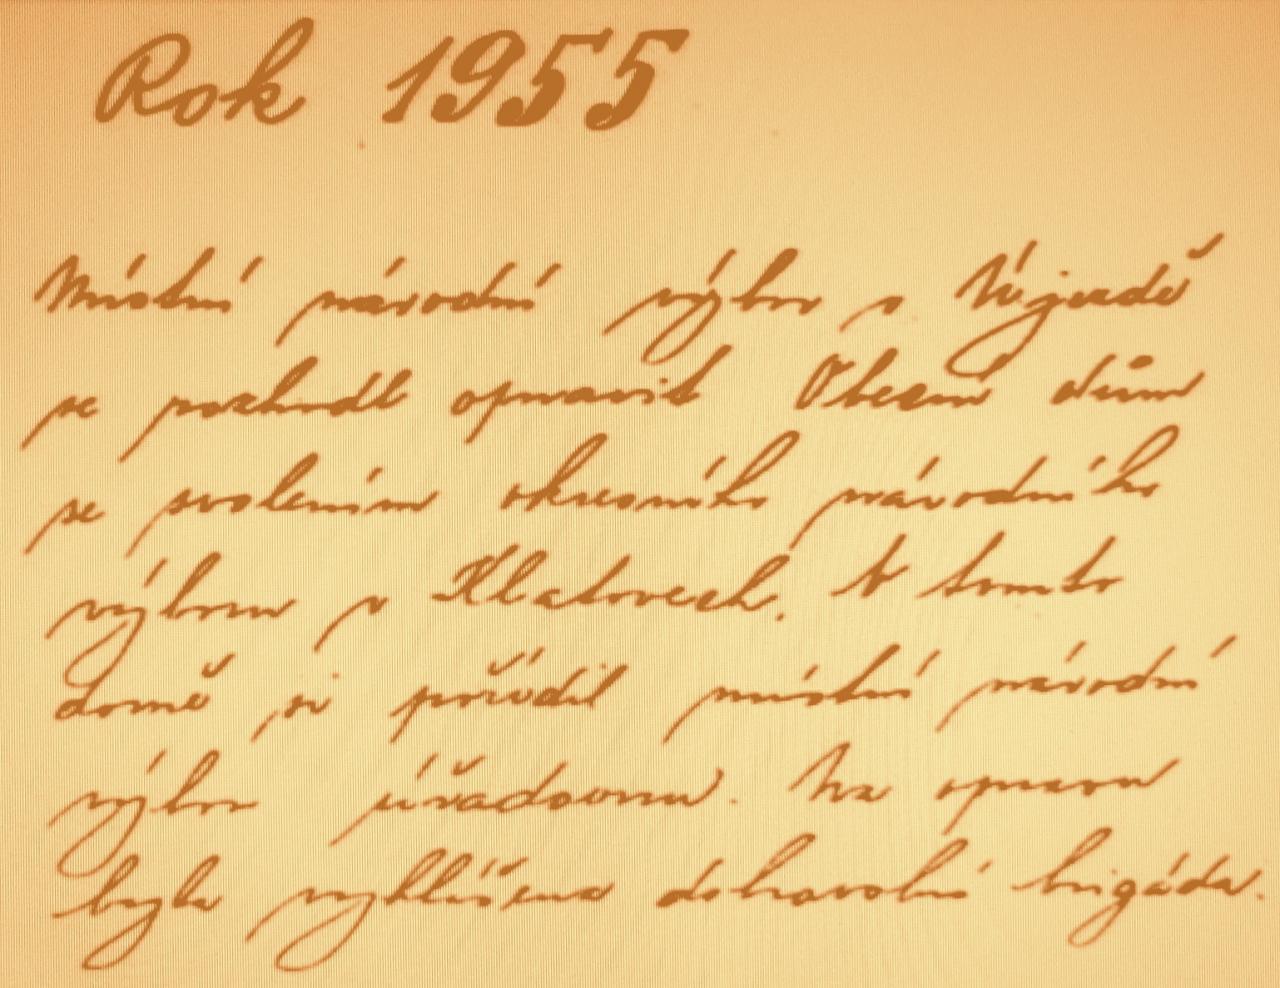 Rok 1955
Místní národní výbor v Újezdě
se rozhodl opravit Obecní dům
se svolením okresního národního
výboru v Klatovech. V tomto
domě si pořídil místní národní
výbor úřadovnu. Na opravu
byla vyhlášena dobrovolná brigáda.